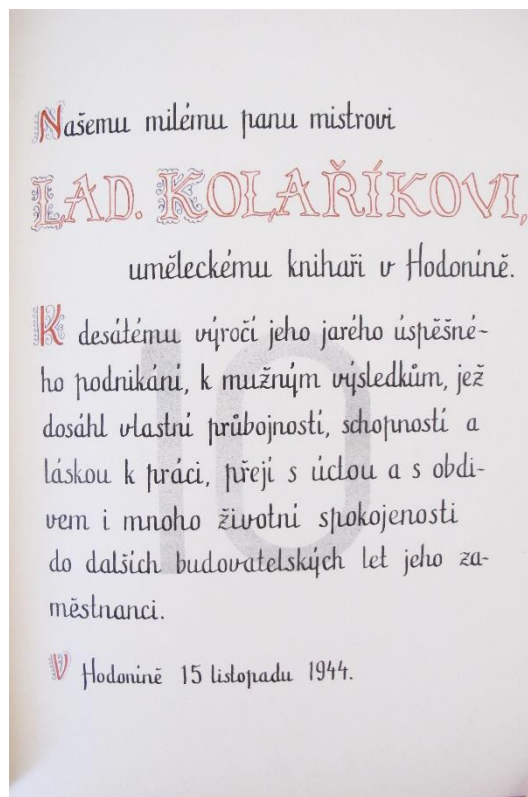 Našemu milému panu mistrovi
LAD. KOLAŘÍKOVI,
uměleckému knihaři v Hodoníně.
K desátému výročí jeho jarého úspěšné-
ho podnikání, k mužným výsledkům, jež
dosáhl vlastní průbojností, schopností a
láskou k práci, přejí s úctou a s obdi-
vem i mnoho životní spokojenosti
do dalších budovatelských let jeho za-
městnanci.
V Hodoníně 15 listopadu 1944.
10